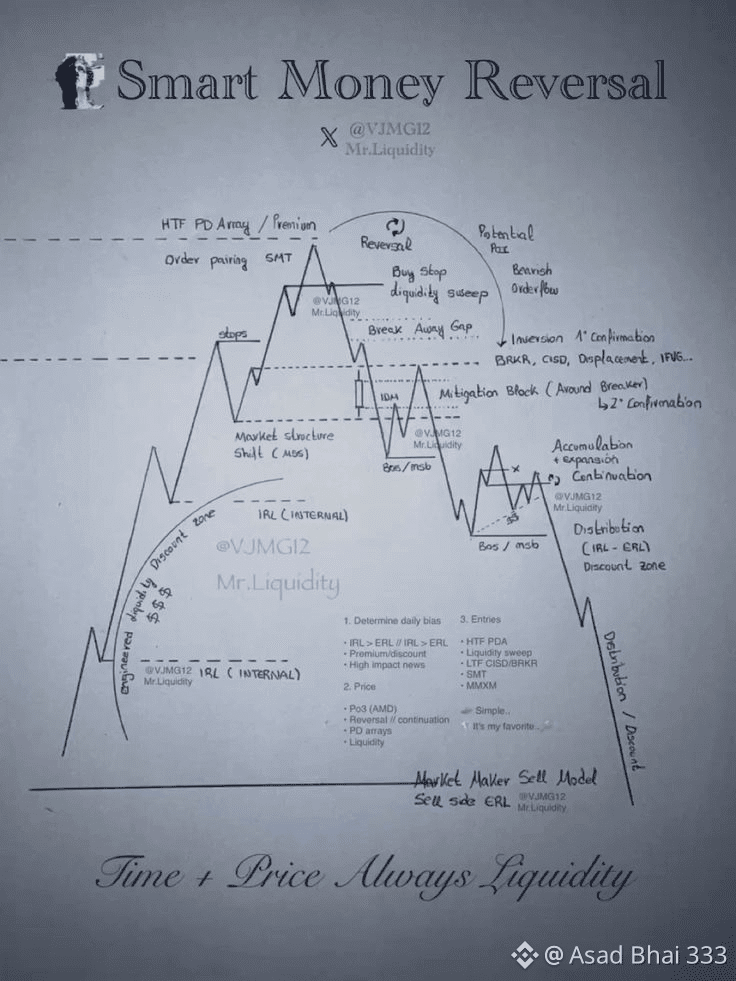 Smart Money Reversal
@VJMG12
Mr.Liquidity
HTF PD Array / Premium
Order pairing SMT
Reversal
Potential
Bearish
Orderflow
@VJMG12
Mr.Liquidity
Buy Stop
liquidity sweep
stops
Break Away Gap
Inversion 1° Confirmation
BRKR, CISD, Displacement, IFVG...
IDM
Mitigation Block (Around Breaker)
2° Confirmation
Market structure
Shift (MSS)
@VJMG12
Mr.Liquidity
Bos/msb
Accumulation
+ expansion
Continuation
@VJMG12
Mr.Liquidity
IRL (INTERNAL)
@VJMG12
Mr.Liquidity
Bos / msb
Distribution
(IRL - ERL)
Discount zone
engineered liquidity Discount zone
$ $ $
@VJMG12
Mr.Liquidity
IRL (INTERNAL)
1. Determine daily bias
· IRL > ERL // IRL > ERL
· Premium/discount
· High impact news
2. Price
· Po3 (AMD)
· Reversal // continuation
· PD arrays
· Liquidity
3. Entries
· HTF PDA
· Liquidity sweep
· LTF CISD/BRKR
· SMT
· MMXM
Simple..
It's my favorite..
Distribution / Discount
Market Maker Sell Model
Sell side ERL
@VJMG12
Mr.Liquidity
Time + Price Always Liquidity
@ Asad Bhai 333